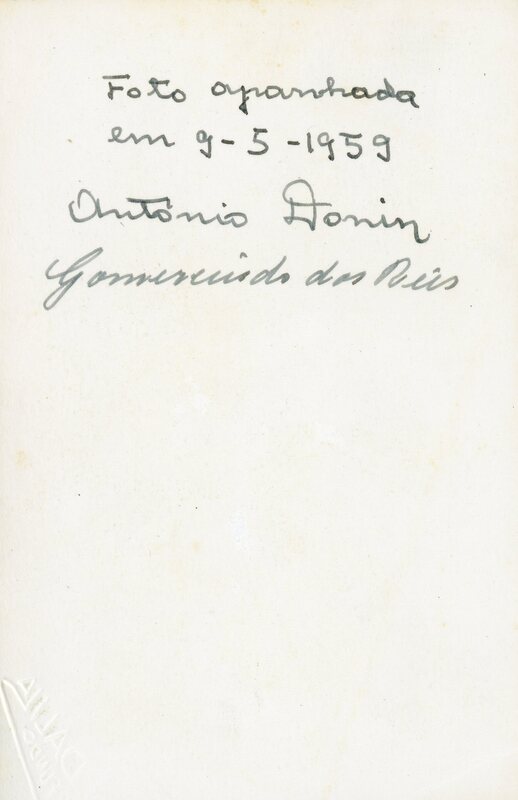 Foto apanhada
em 9-5-1959
António Donin
Gomercindo dos Reis